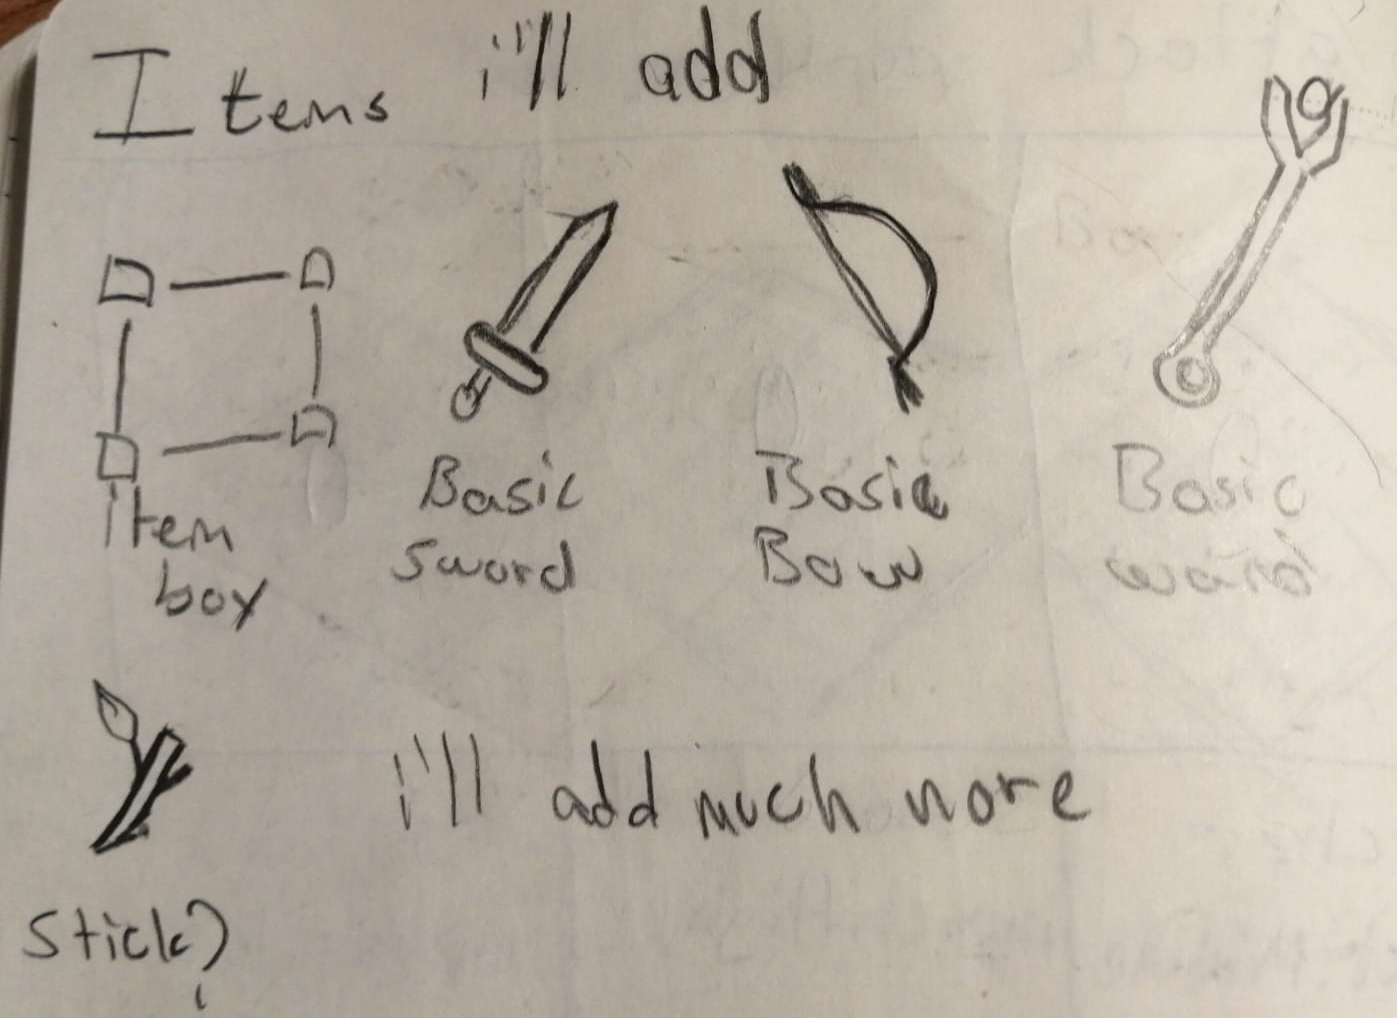 Items i'll add
item
box
Basic
sword
Basic
Bow
Basic
wand
stick?
i'll add much nore